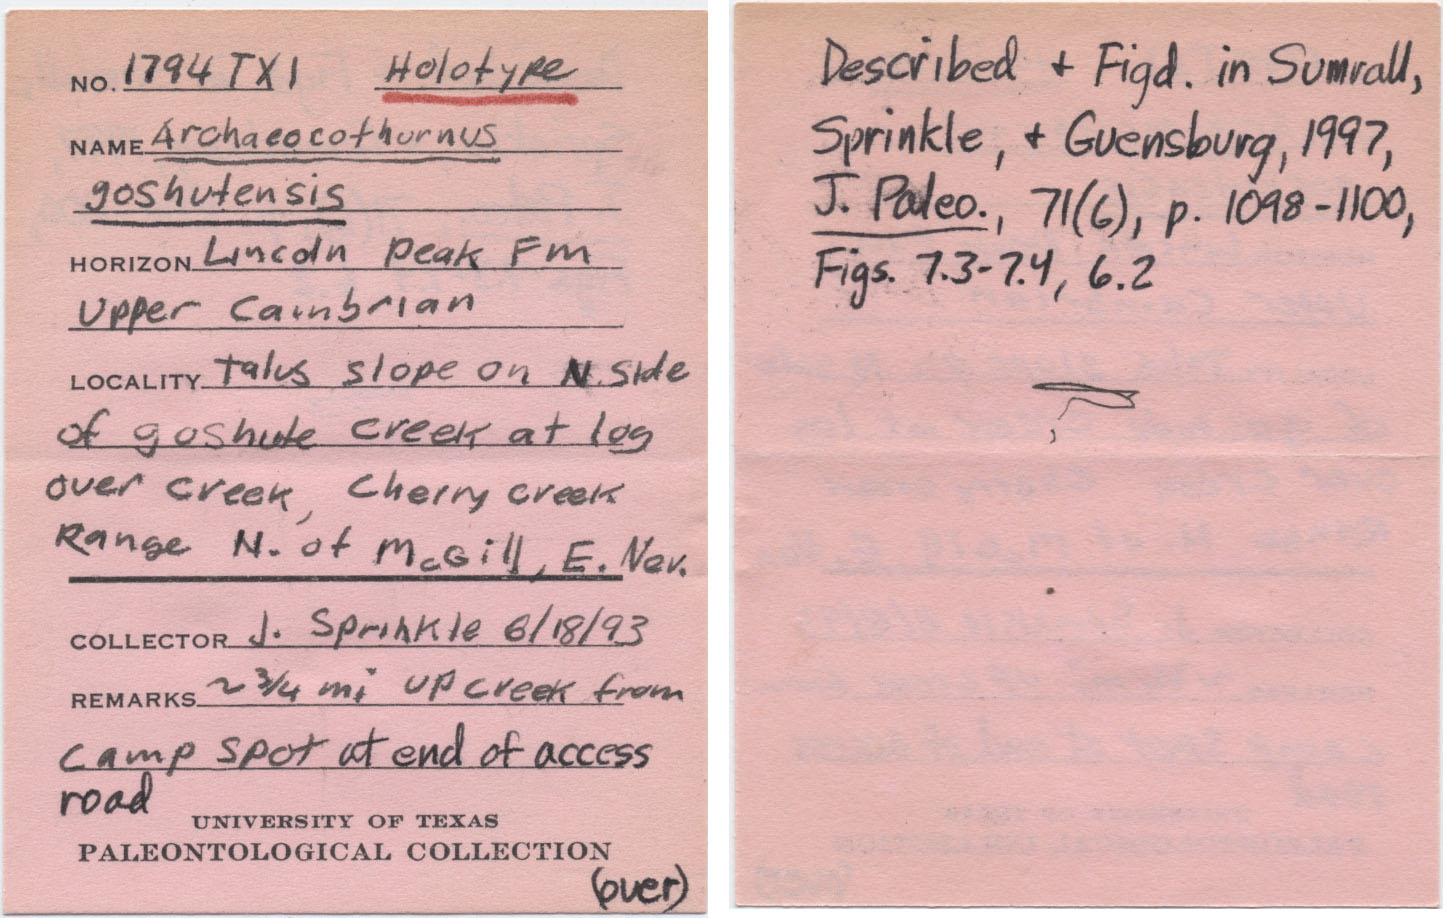 NO. 1794TX1 Holotype
NAME Archaeocothurnus
goshutensis
HORIZON Lincoln Peak Fm
Upper Cambrian
LOCALITY talus slope on N. side
of goshute creek at log
over creek, Cherry creek
Range N. of McGill, E. Nev.
COLLECTOR J. Sprinkle 6/18/93
REMARKS ~ 3/4 mi up creek from
camp spot at end of access
road
UNIVERSITY OF TEXAS
PALEONTOLOGICAL COLLECTION
(over)
Described + Figd. in Sumrall,
Sprinkle, + Guensburg, 1997,
J. Paleo., 71(6), p. 1098-1100,
Figs. 7.3-7.4, 6.2